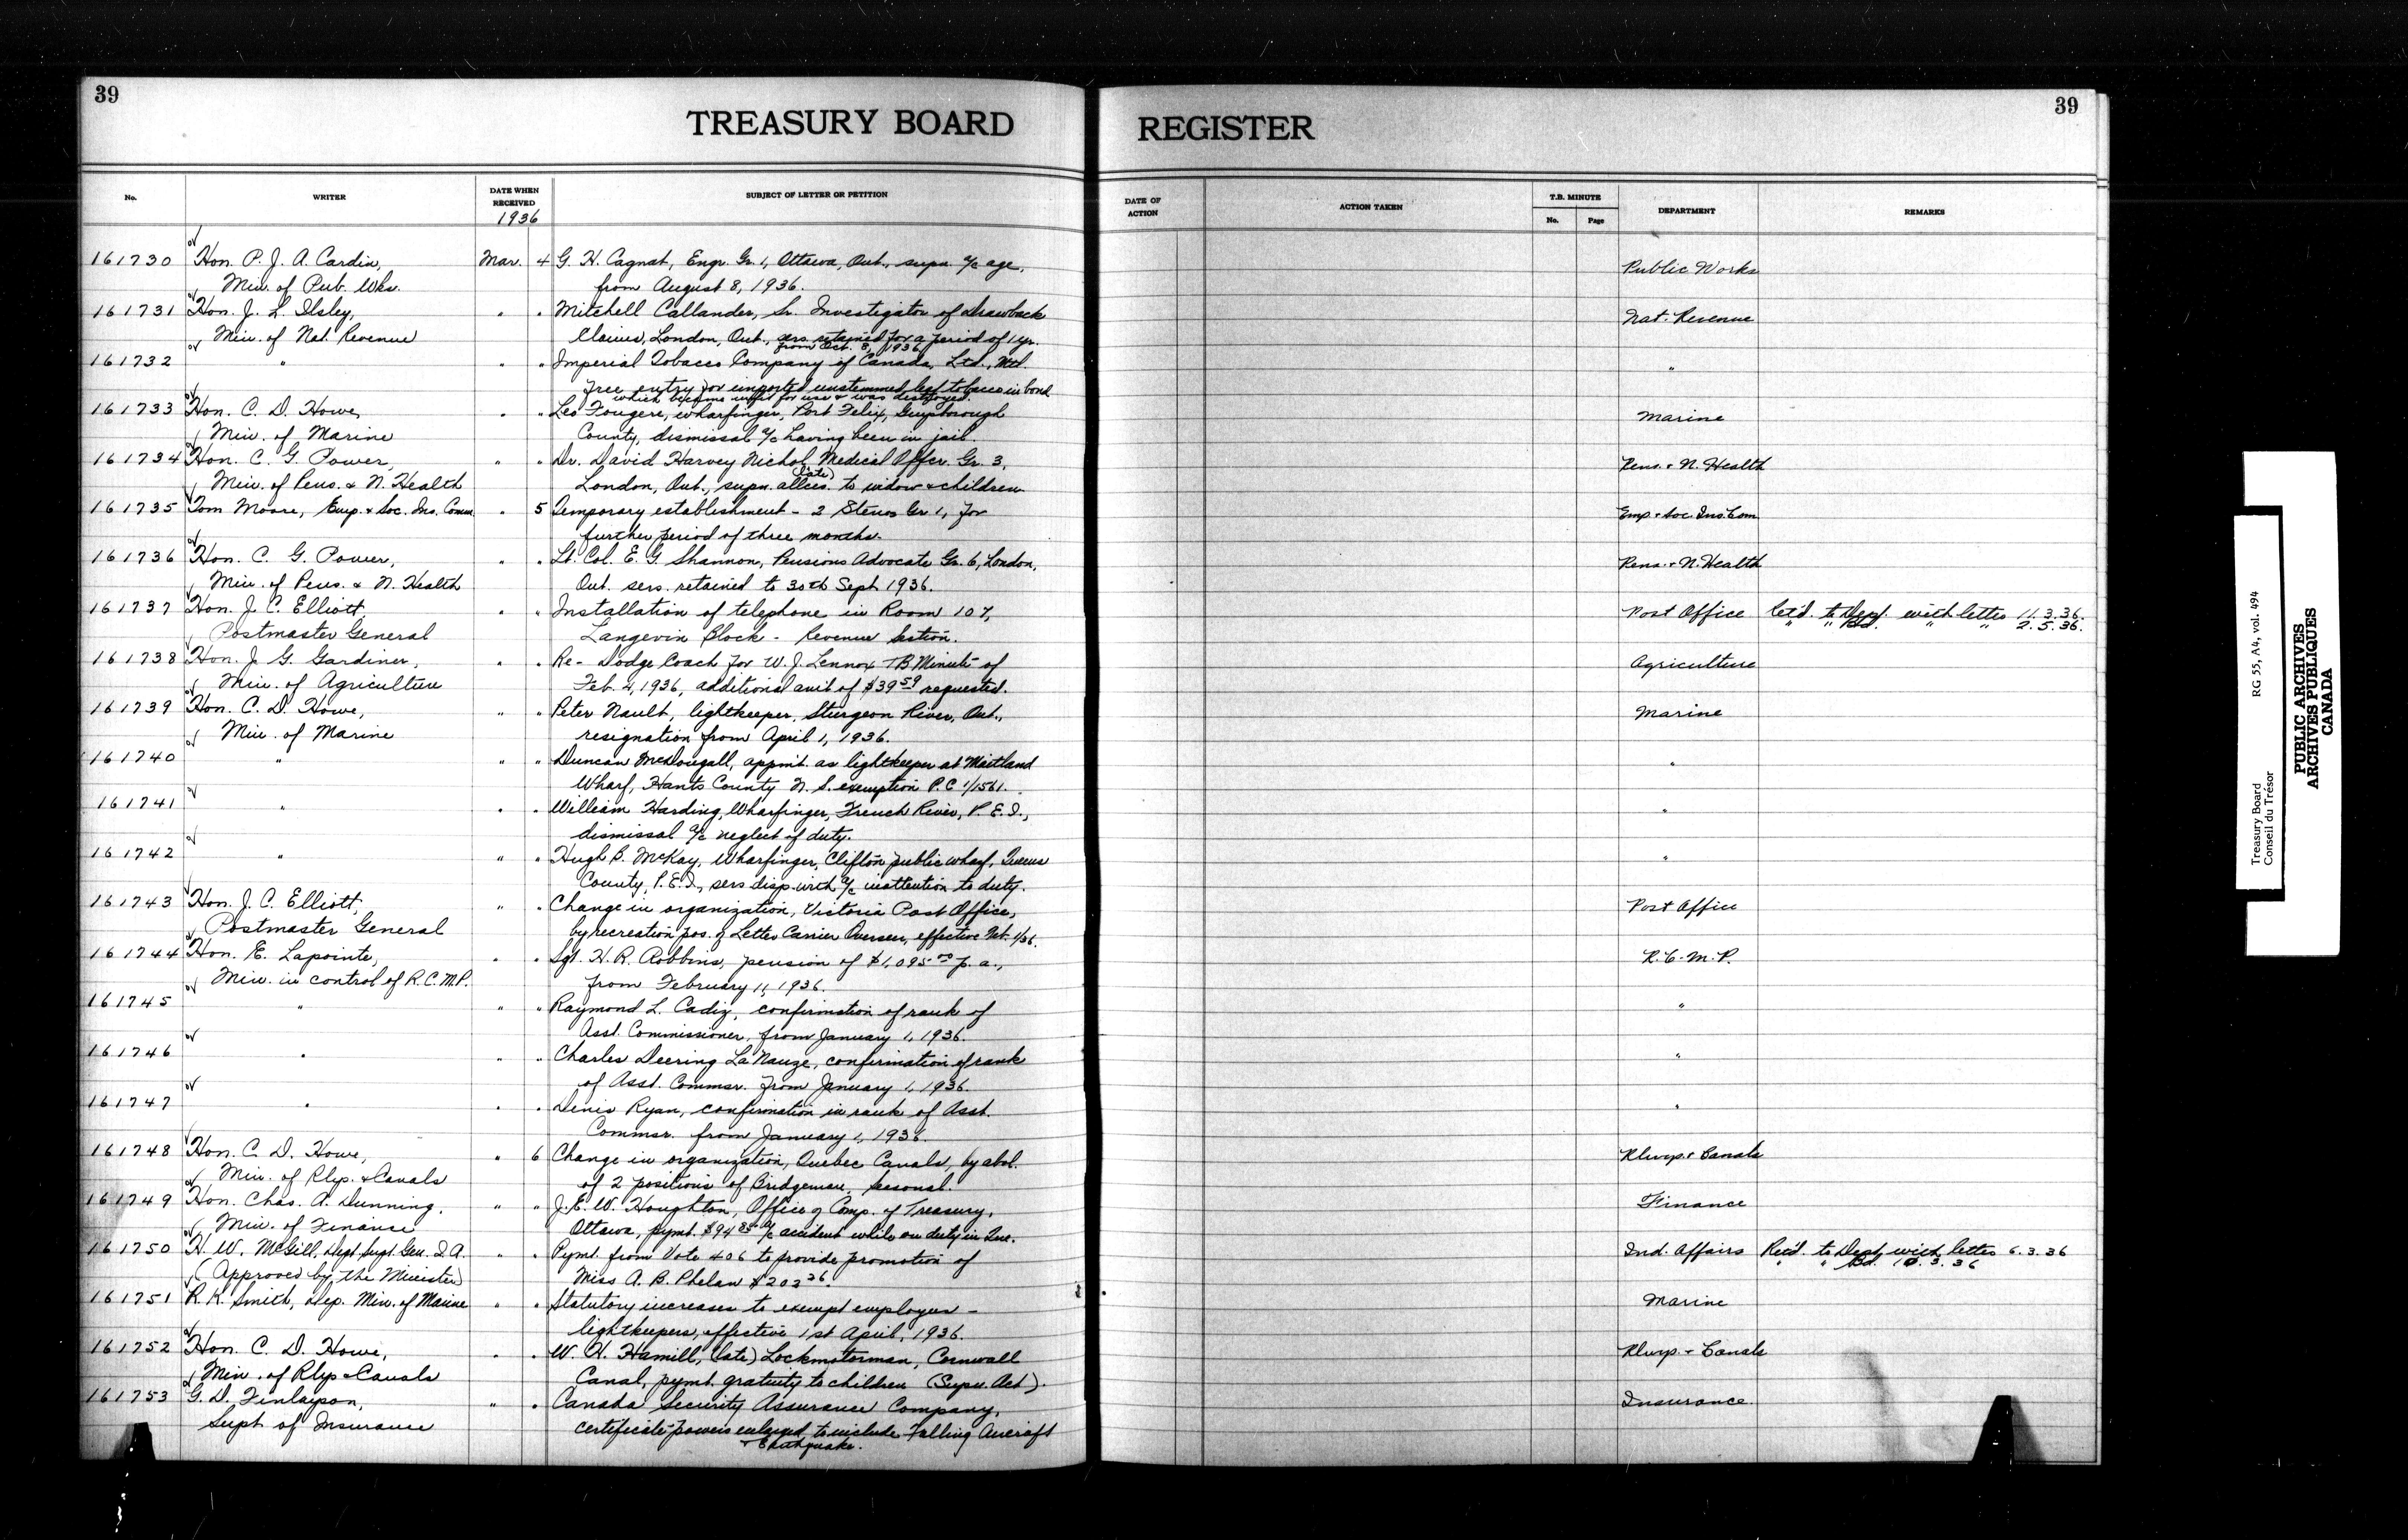 39
TREASURY BOARD
No.
WRITER
DATE WHEN RECEIVED
1936
SUBJECT OF LETTER OR PETITION
161730 Hon. P. J. A. Cardin, Mar. 4 G. H. Cagnat, Engr. Gr. 1, Ottawa, Ont., supn. a/c age,
Min. of Pub. Wks. from August 8, 1936.
161731 Hon. J. L. Ilsley, " " Mitchell Callander, Sr. Investigator of Drawback
Min. of Nat. Revenue Claims, London, Ont., sers. retained for a period of 1 yr.
from Oct. 3, 1936
161732 " " " Imperial Tobacco Company of Canada, Ltd., Mtl.
free entry for imported unstemmed leaf tobacco in bond
which became unfit for use & was destroyed.
161733 Hon. C. D. Howe, " " Leo Fougere, wharfinger, Port Felix, Guysborough
Min. of Marine County, dismissal a/c having been in jail.
161734 Hon. C. G. Power, " " Dr. David Harvey Nichol, Medical Offcr. Gr. 3,
(late)
Min. of Pens. & N. Health London, Ont., supn. allces. to widow & children
161735 Tom Moore, Emp. & Soc. Ins. Comm. " 5 Temporary establishment - 2 Stenos Gr 1, for
further period of three months.
161736 Hon. C. G. Power, " " Lt. Col. E. G. Shannon, Pensions Advocate Gr. 6, London,
Min. of Pens. & N. Health Ont. sers. retained to 30th Sept 1936.
161737 Hon. J. C. Elliott, " " Installation of telephone in Room 107,
Postmaster General Langevin Block - Revenue Section.
161738 Hon. J. G. Gardiner, " " Re - Dodge Coach for W. J. Lennox TB Minute of
Min. of Agriculture Feb. 4, 1936, additional amt of $39.59 requested.
161739 Hon. C. D. Howe, " " Peter Nault, lightkeeper, Sturgeon River, Ont.,
Min. of Marine resignation from April 1, 1936.
161740 " " " Duncan McDougall, appmt. as lightkeeper at Maitland
Wharf, Hants County N. S. exemption P.C. 1/1561.
161741 " " " William Harding, Wharfinger, French River, P. E. I.,
dismissal a/c neglect of duty.
161742 " " " Hugh B. McKay, Wharfinger, Clifton public wharf, Queens
County, P.E.I., sers disp. with a/c inattention to duty.
161743 Hon. J. C. Elliott, " " Change in organization, Victoria Post Office,
Postmaster General by recreation pos. of Letter Carrier Overseer, effective
161744 Hon. E. Lapointe, " " Sgt. H. R. Robbins, pension of $1,095.00 p. a.,
Min. in control of R.C.M.P. from February 11, 1936.
161745 " " " Raymond L. Cadiz, confirmation of rank of
Asst. Commissioner, from January 1, 1936.
161746 " " " Charles Deering La Nauze, confirmation of rank
of Asst. Commsr. from January 1, 1936.
161747 " " " Denis Ryan, confirmation in rank of Asst.
Commsr. from January 1, 1936.
161748 Hon. C. D. Howe, " 6 Change in organization, Quebec Canals, by abol.
Min. of Rlys. & Canals of 2 positions of Bridgeman, Seasonal.
161749 Hon. Chas. A. Dunning, " " J. E. W. Houghton, Office of Comp. of Treasury,
Min. of Finance Ottawa, pymt. $94.85 a/c accident while on duty in Que.
161750 H. W. McGill, Dept Supt. Gen. I. A. " " Pymt. from Vote 406 to provide promotion of
(Approved by the Minister) Miss A. B. Phelan $202.26.
161751 R. K. Smith, Dep. Min. of Marine " " Statutory increases to exempt employees -
lightkeepers, effective 1st April, 1936.
161752 Hon. C. D. Howe, " " W. H. Hamill, (late) Lockmotorman, Cornwall
Min. of Rlys & Canals Canal, pymt. gratuity to children (Supn. Act).
161753 G. D. Finlayson, " " Canada Security Assurance Company,
Supt of Insurance certificate powers enlarged to include Falling Aircraft
& Earthquake.
39
REGISTER
DATE OF ACTION
ACTION TAKEN
T.B. MINUTE
No. Page
DEPARTMENT
REMARKS
Public Works
Nat. Revenue
"
Marine
Pens. & N. Health
Emp. & Soc. Ins. Com
Pens. & N. Health
Post Office Ret'd. to Dept. with letter 11.3.36.
" " Bd. " " 2.5.36.
Agriculture
Marine
"
"
"
Post Office
R. C. M. P.
"
"
"
Rlwys. & Canals
Finance
Ind. Affairs Ret'd. to Dept. with letter 6.3.36
" " Bd. 10.3.36
Marine
Rlwys. & Canals
Insurance.
Treasury Board RG 55, A4, vol. 494
Conseil du Trésor
PUBLIC ARCHIVES
ARCHIVES PUBLIQUES
CANADA